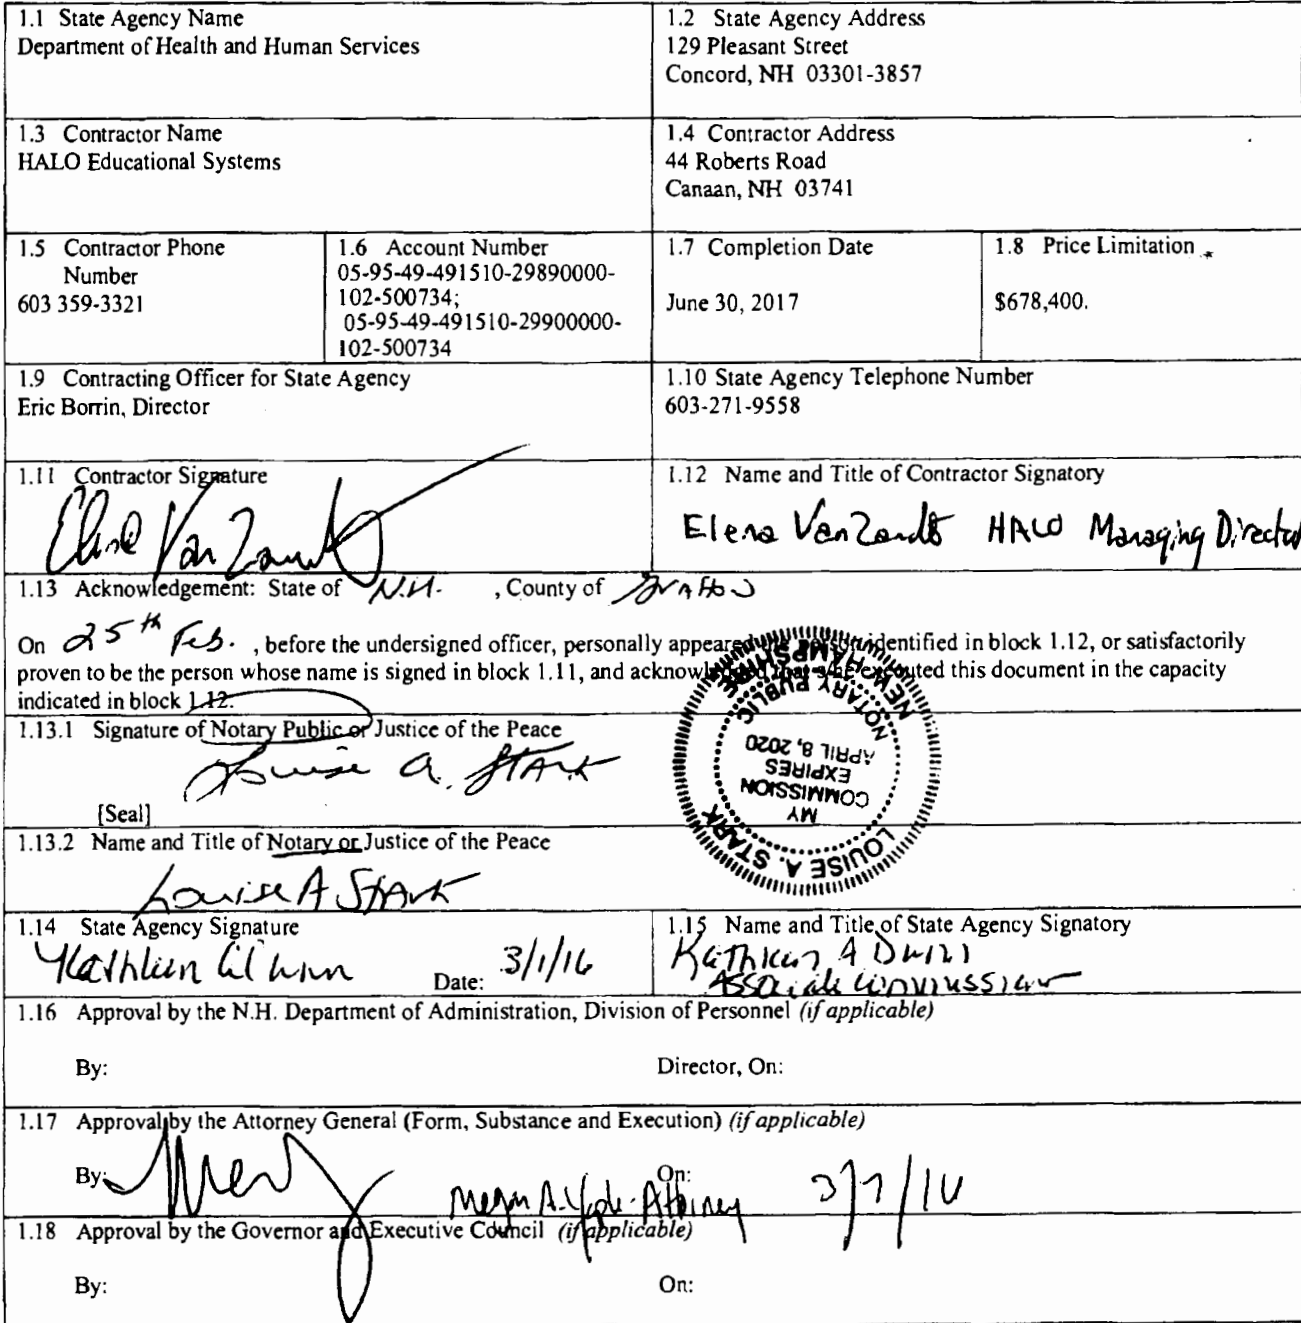 1.1 State Agency Name
Department of Health and Human Services
1.2 State Agency Address
129 Pleasant Street
Concord, NH 03301-3857
1.3 Contractor Name
HALO Educational Systems
1.4 Contractor Address
44 Roberts Road
Canaan, NH 03741
1.5 Contractor Phone
Number
603 359-3321
1.6 Account Number
05-95-49-491510-29890000-
102-500734;
05-95-49-491510-29900000-
102-500734
1.7 Completion Date
June 30, 2017
1.8 Price Limitation
$678,400.
1.9 Contracting Officer for State Agency
Eric Borrin, Director
1.10 State Agency Telephone Number
603-271-9558
1.11 Contractor Signature
1.12 Name and Title of Contractor Signatory
Elena VanZandt HALO Managing Director
1.13 Acknowledgement: State of N.H. , County of Grafton
On 25th Feb. , before the undersigned officer, personally appeared the person identified in block 1.12, or satisfactorily
proven to be the person whose name is signed in block 1.11, and acknowledged that s/he executed this document in the capacity
indicated in block 1.12.
1.13.1 Signature of Notary Public or Justice of the Peace
Louise A. Stark
[Seal]
LOUISE A. STARK
MY
COMMISSION
EXPIRES
APRIL 8, 2020
NOTARY PUBLIC
NEW HAMPSHIRE
1.13.2 Name and Title of Notary or Justice of the Peace
Louise A Stark
1.14 State Agency Signature
Kathleen
Date: 3/1/16
1.15 Name and Title of State Agency Signatory
Kathleen A Dunn
Associate Commissioner
1.16 Approval by the N.H. Department of Administration, Division of Personnel (if applicable)
By:
Director, On:
1.17 Approval by the Attorney General (Form, Substance and Execution) (if applicable)
By:
Megan A. Attorney
On: 3/7/16
1.18 Approval by the Governor and Executive Council (if applicable)
By:
On: